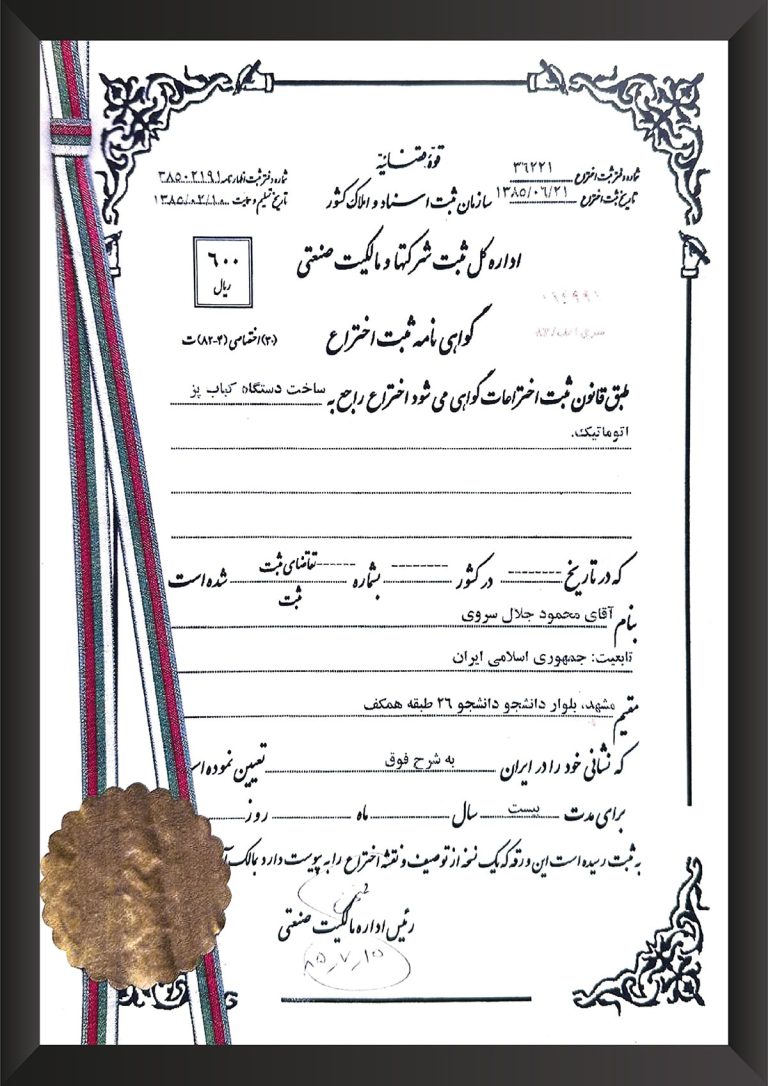 قوهٔ قضائیه
شماره دفتر ثبت اختراع ۳۶۲۲۱
شماره دفتر ثبت اظهارنامه ۳۸۵۰۲۱۹۱
تاریخ ثبت اختراع ۱۳۸۵/۰۶/۲۱
سازمان ثبت اسناد و املاک کشور
تاریخ تسلیم و حمایت ۱۳۸۵/۰۲/۱۰
اداره کل ثبت شرکتها و مالکیت صنعتی
۶۰۰
ریال
گواهی نامه ثبت اختراع
(۳۰) اختصاصی (۴-۸۲) ت
طبق قانون ثبت اختراعات گواهی می شود اختراع راجع به ساخت دستگاه کباب پز
اتوماتیک.
که در تاریخ -------- در کشور -------- بشماره ------ تقاضای ثبت
ثبت شده است
بنام آقای محمود جلال سروی
تابعیت: جمهوری اسلامی ایران
مقیم مشهد، بلوار دانشجو دانشجو ۲۶ طبقه همکف
که نشانی خود را در ایران به شرح فوق تعیین نموده اس
برای مدت بیست سال ماه روز
به ثبت رسیده است این ورقه که یک نسخه از توصیف و نقشه اختراع را به پیوست دارد بمالک آ
رئیس اداره مالکیت صنعتی
۸۵_۷_۱۵